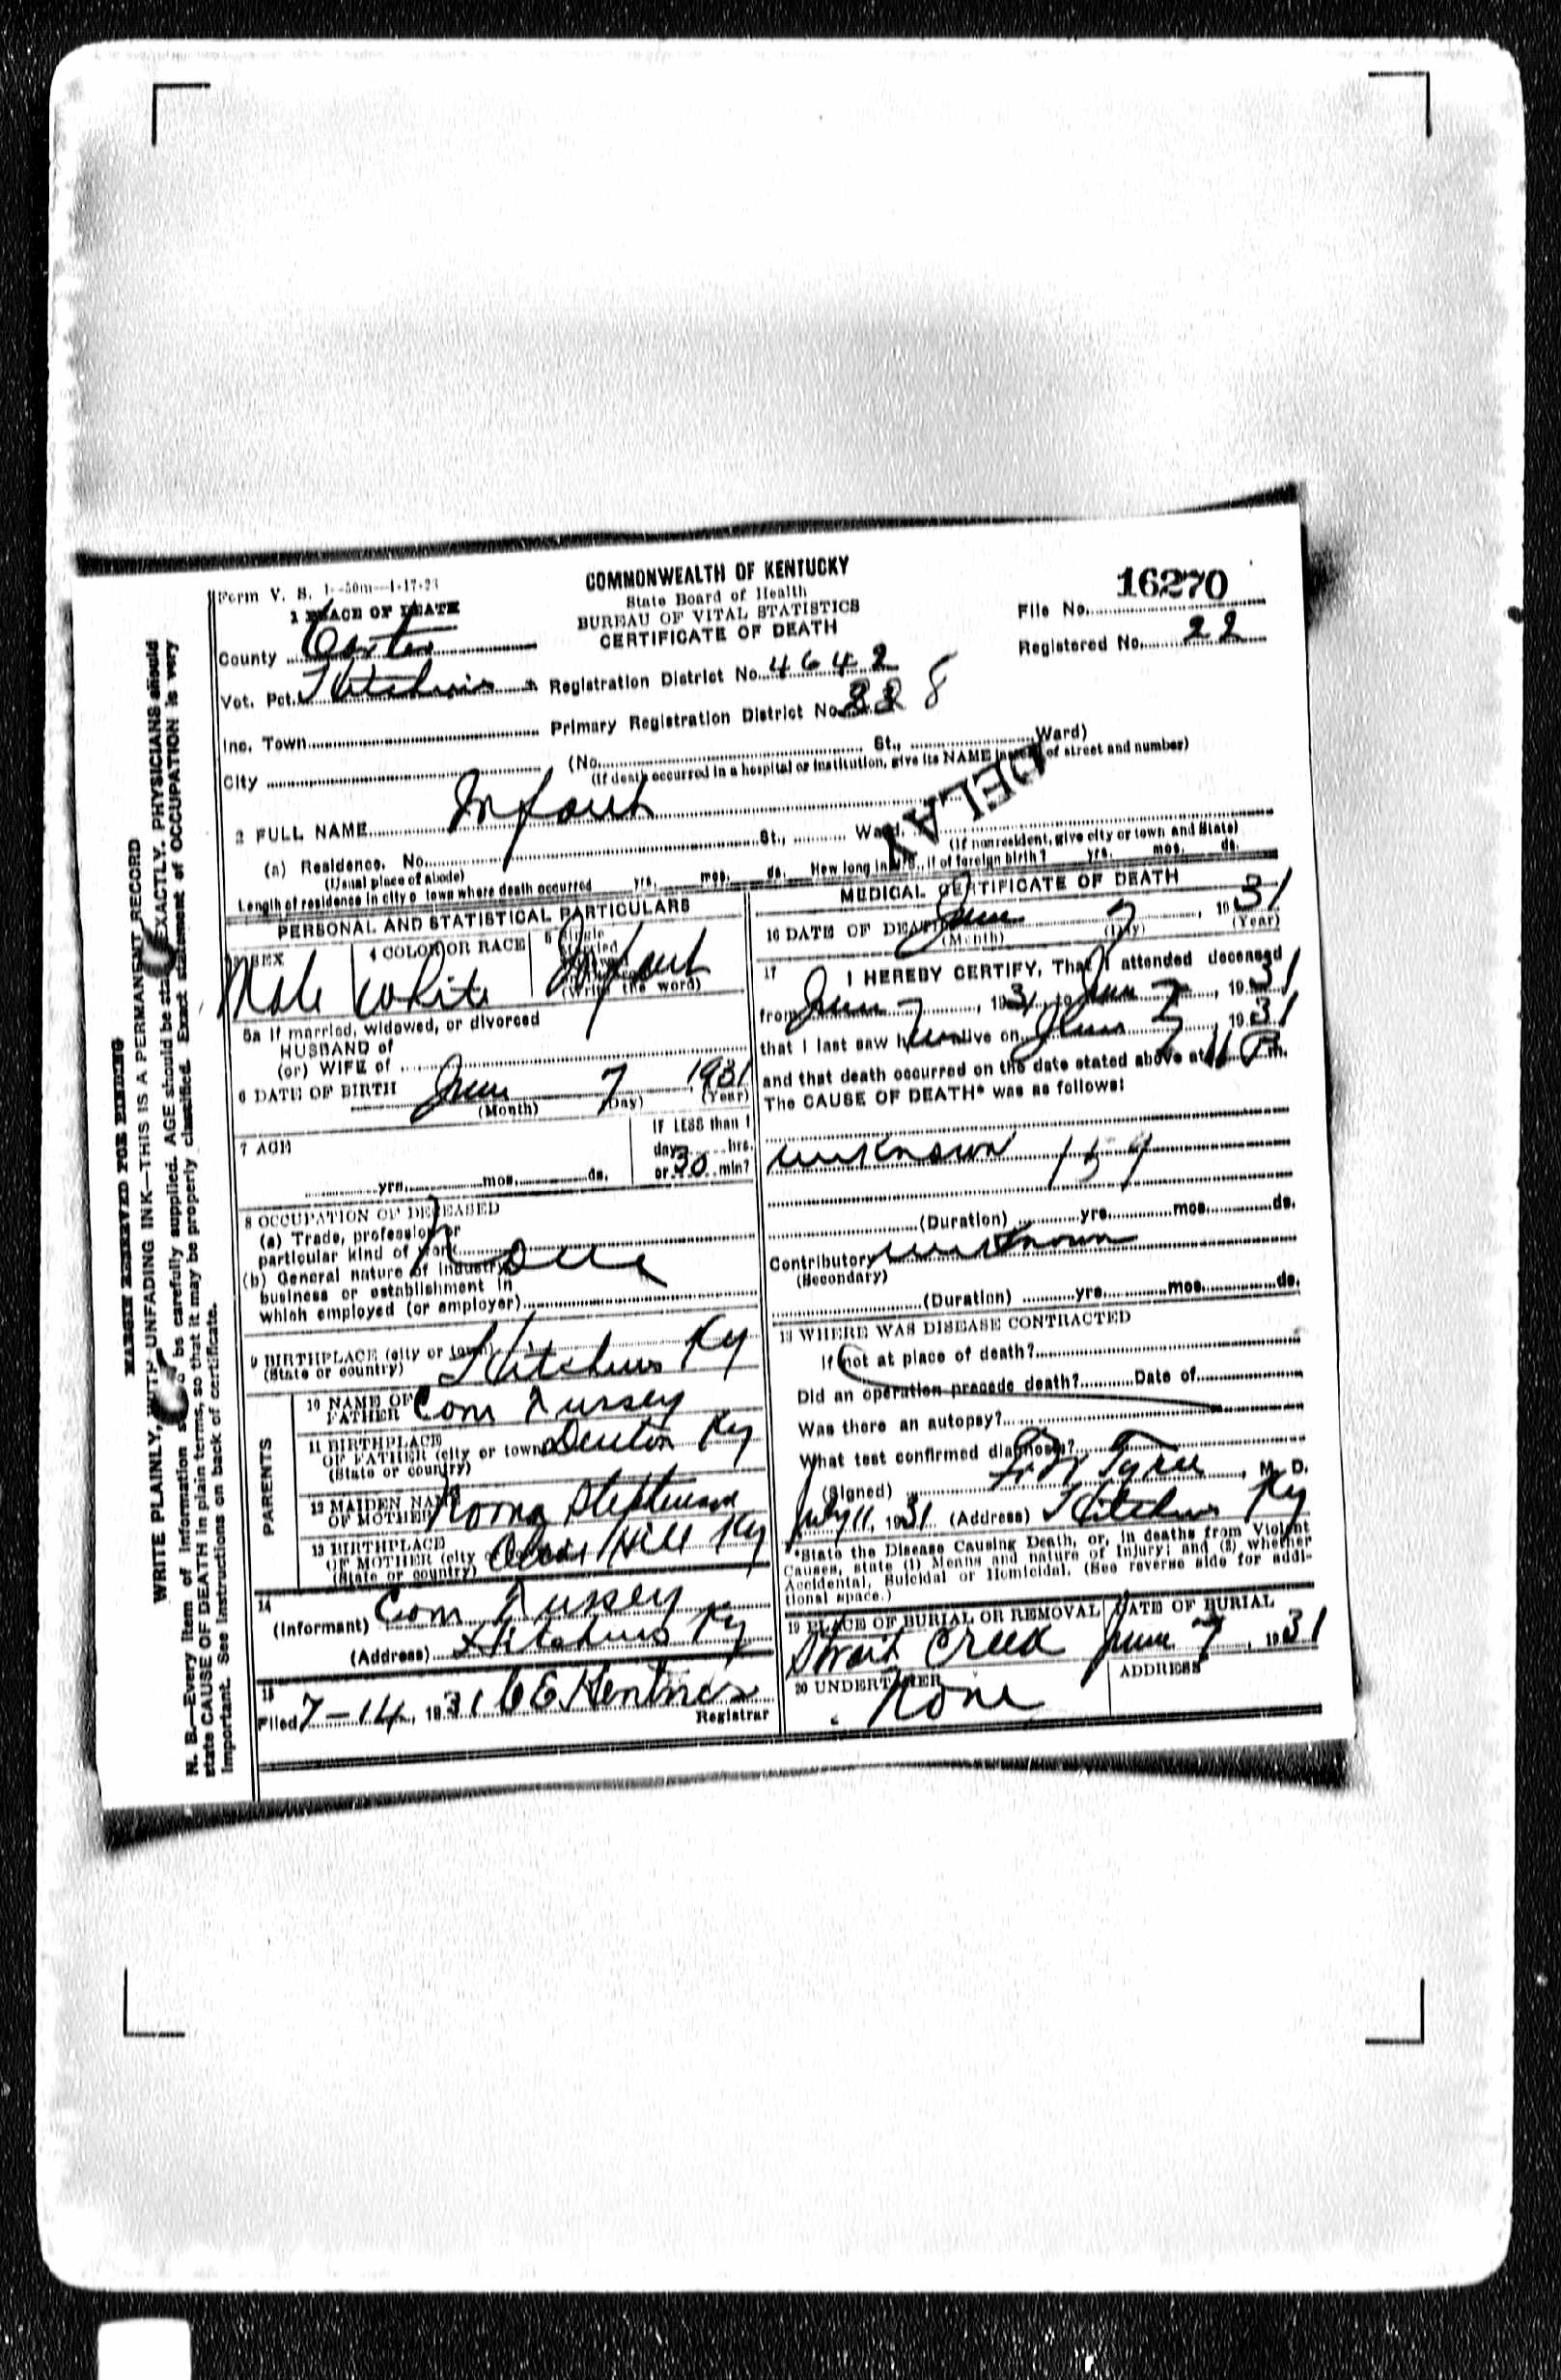 Form V. S. 1--50m--1-17-23
COMMONWEALTH OF KENTUCKY
State Board of Health
BUREAU OF VITAL STATISTICS
CERTIFICATE OF DEATH
File No. 16270
Registered No. 22
1 PLACE OF DEATH
County Carter
Vot. Pct. Hitchins
Registration District No. 4642
Inc. Town
Primary Registration District No. 228
City (No. St., Ward)
(If death occurred in a hospital or institution, give its NAME instead of street and number)
DELAY
2 FULL NAME Infant
(a) Residence. No. St., Ward.
(Usual place of abode)
(If nonresident, give city or town and State)
Length of residence in city o town where death occurred yrs. mos. ds. How long in U.S., if of foreign birth? yrs. mos. ds.
PERSONAL AND STATISTICAL PARTICULARS
3 SEX 4 COLOR OR RACE 5 Single
Married
Male White Infant
(Write the word)
5a If married, widowed, or divorced
HUSBAND of
(or) WIFE of
6 DATE OF BIRTH June 7 1931
(Month) (Day) (Year)
7 AGE IF LESS than 1
day hrs.
yrs. mos. ds. or 30 min?
8 OCCUPATION OF DECEASED
(a) Trade, profession or
particular kind of work
None
(b) General nature of industry,
business or establishment in
which employed (or employer)
9 BIRTHPLACE (city or town) Hitchins Ky
(State or country)
PARENTS
10 NAME OF FATHER Com Tussey
11 BIRTHPLACE
OF FATHER (city or town) Denton Ky
(State or country)
12 MAIDEN NAME
OF MOTHER Stephenson
13 BIRTHPLACE
OF MOTHER (city Olive Hill Ky
(State or country)
14
(Informant) Com Tussey
(Address) Hitchins Ky
15
Filed 7-14, 1931 C E
Registrar
MEDICAL CERTIFICATE OF DEATH
16 DATE OF DEATH June 7, 1931
(Month) (Day) (Year)
17
I HEREBY CERTIFY, That I attended deceased
from June 7, 1931, to June 7, 1931
that I last saw him alive on June 7, 1931
and that death occurred on the date stated above at 11 P.m.
The CAUSE OF DEATH* was as follows:
unknown 159
(Duration) yrs. mos. ds.
Contributory unknown
(Secondary)
(Duration) yrs. mos. ds.
18 WHERE WAS DISEASE CONTRACTED
If not at place of death?
Did an operation precede death? Date of
Was there an autopsy?
What test confirmed diagnosis?
(Signed) Tyree, M. D.
July 11, 1931 (Address) Hitchins Ky
*State the Disease Causing Death, or, in deaths from Violent
Causes, state (1) Means and nature of Injury; and (2) whether
Accidental, Suicidal or Homicidal. (See reverse side for addi-
tional space.)
19 PLACE OF BURIAL OR REMOVAL DATE OF BURIAL
Strait Creek June 7, 1931
20 UNDERTAKER ADDRESS
None
MARGIN RESERVED FOR BINDING
WRITE PLAINLY, WITH UNFADING INK—THIS IS A PERMANENT RECORD
N. B.—Every item of information should be carefully supplied. AGE should be stated EXACTLY. PHYSICIANS should
state CAUSE OF DEATH in plain terms, so that it may be properly classified. Exact statement of OCCUPATION is very
important. See instructions on back of certificate.